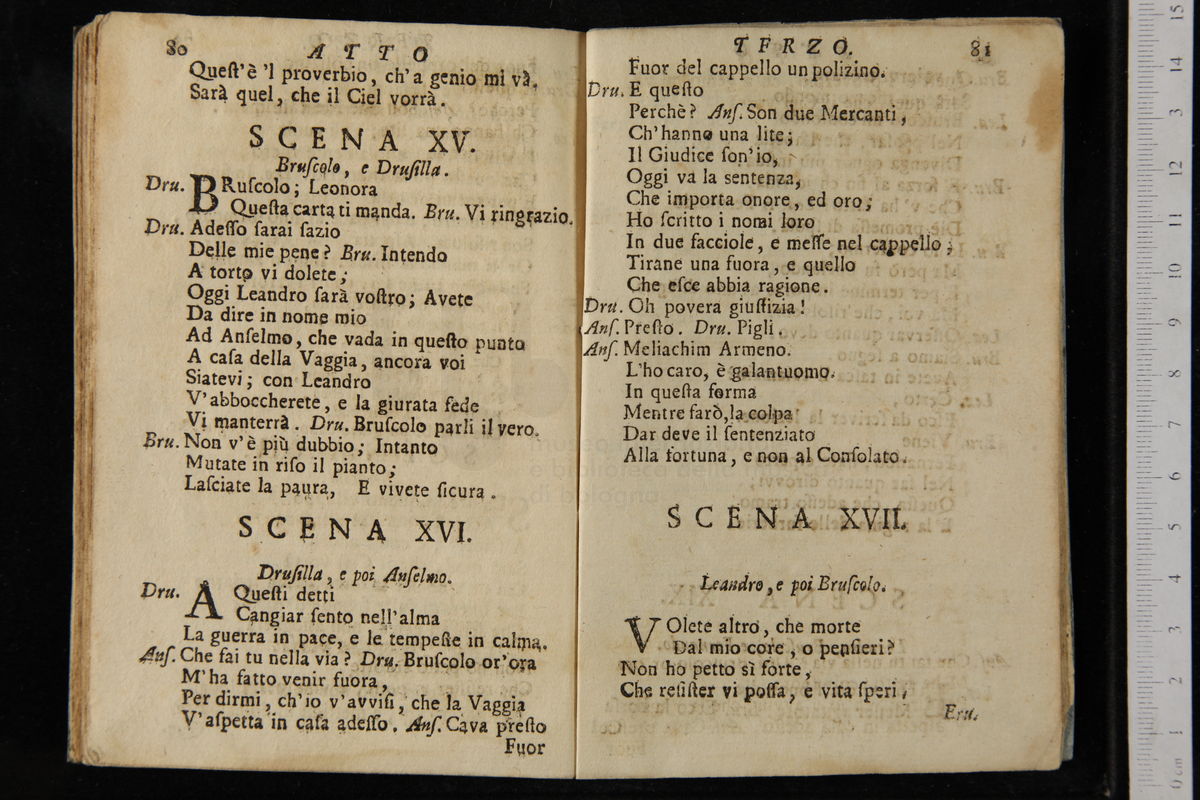 80 ATTO
Queſt'è 'l proverbio, ch'a genio mi và.
Sarà quel, che il Ciel vorrà.
SCENA XV.
Bruſcolo, e Druſilla.
Dru. BRuſcolo; Leonora
Queſta carta ti manda. Bru. Vi ringrazio.
Dru. Adeſſo ſarai ſazio
Delle mie pene? Bru. Intendo
A torto vi dolete;
Oggi Leandro ſarà voſtro; Avete
Da dire in nome mio
Ad Anſelmo, che vada in queſto punto
A caſa della Vaggia, ancora voi
Siatevi; con Leandro
V'abboccherete, e la giurata fede
Vi manterrà. Dru. Bruſcolo parli il vero.
Bru. Non v'è più dubbio; Intanto
Mutate in riſo il pianto;
Laſciate la paura, E vivete ſicura.
SCENA XVI.
Druſilla, e poi Anſelmo.
Dru. A Queſti detti
Cangiar ſento nell'alma
La guerra in pace, e le tempeſte in calma.
Anſ. Che fai tu nella via? Dru. Bruſcolo or'ora
M'ha fatto venir fuora,
Per dirmi, ch'io v'avviſi, che la Vaggia
V'aſpetta in caſa adeſſo. Anſ. Cava preſto
Fuor
TERZO. 81
Fuor del cappello un polizino.
Dru. E queſto
Perchè? Anſ. Son due Mercanti,
Ch'hanno una lite;
Il Giudice ſon'io,
Oggi va la sentenza,
Che importa onore, ed oro;
Ho ſcritto i nomi loro
In due facciole, e meſſe nel cappello;
Tirane una fuora, e quello
Che eſce abbia ragione.
Dru. Oh povera giuſtizia!
Anſ. Preſto. Dru. Pigli.
Anſ. Meliachim Armeno.
L'ho caro, è galantuomo.
In queſta forma
Mentre farò, la colpa
Dar deve il ſentenziato
Alla fortuna, e non al Conſolato.
SCENA XVII.
Leandro, e poi Bruſcolo.
VOlete altro, che morte
Dal mio core, o penſieri?
Non ho petto sì forte,
Che reſiſter vi poſſa, e vita ſperi,
Bru.